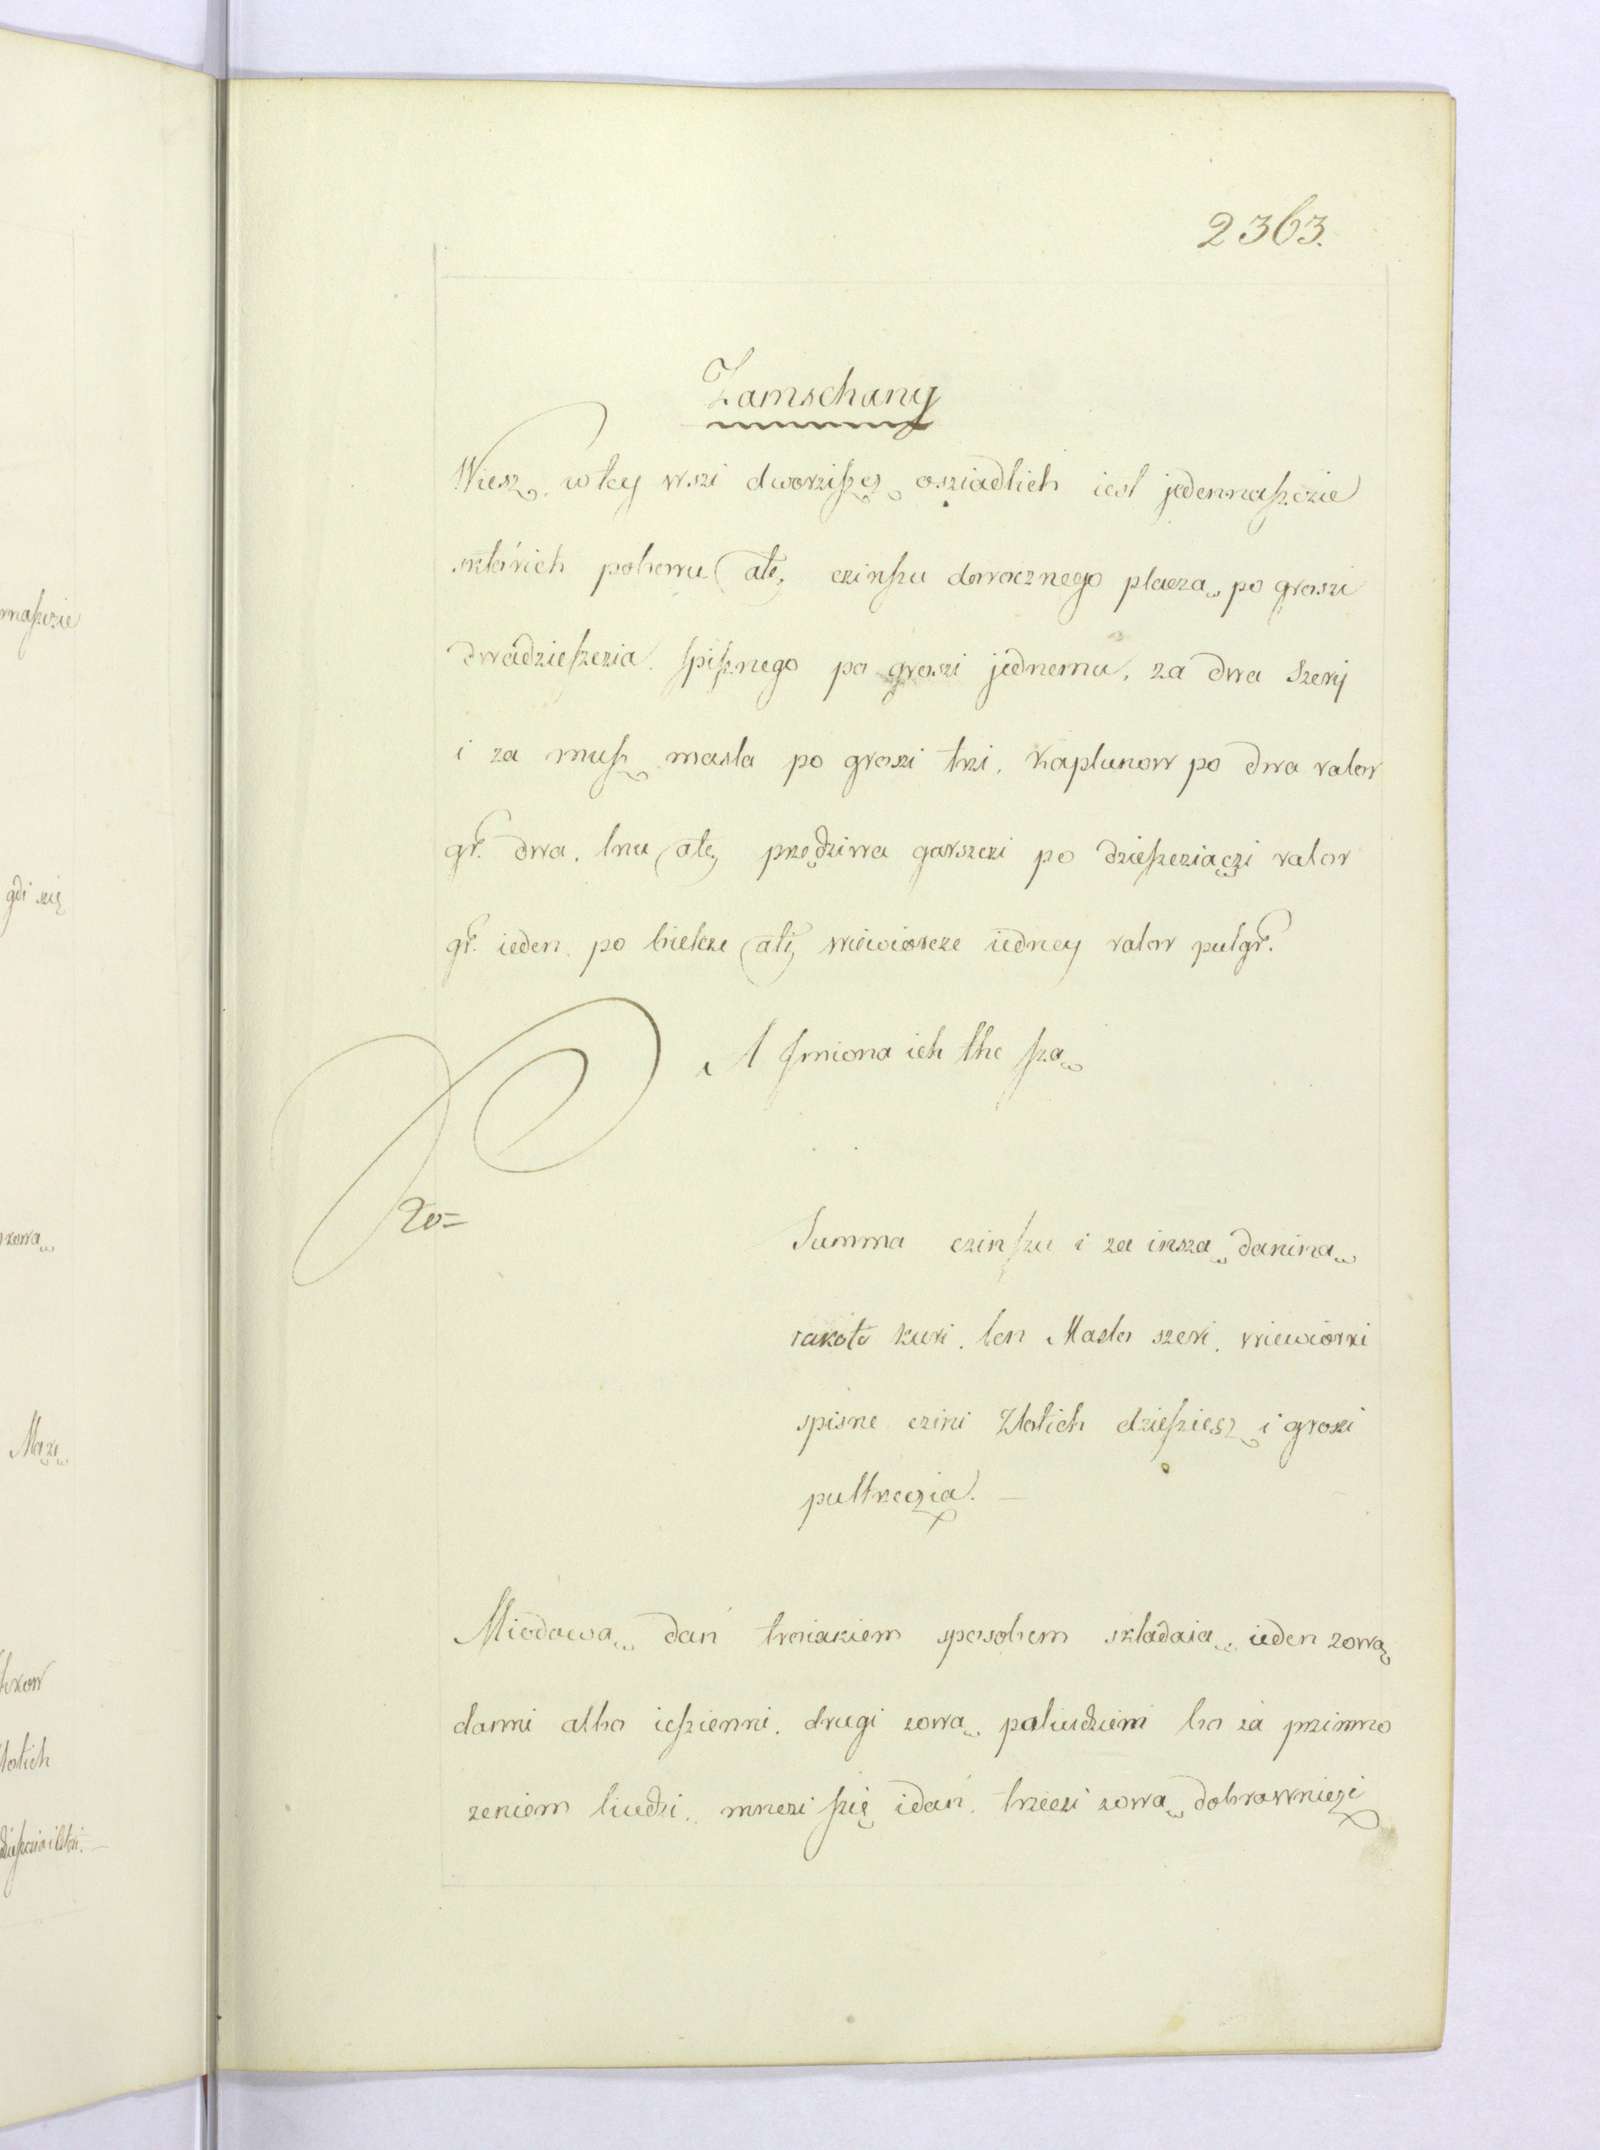 2363.
Zamschany
Wiesz. wtey wszi dworziszcz osziadlich iest jedennaszczie
sktórich pohenu ale, czinszu dorocznego płacza po groszi
dwadzieszczia. spisznego po groszi jednemu, za dwa Szerij
i za musz masla po groszi trzi. Kaplunow po dwa valor
gr. dwa. lnu ale, przędziwa garszczi po dzieszcziączi valor
gr. ieden. po bielcze ali, wiewiorcze iedney valor pulgr.
A Jmiona ich the sza
Summa czinszu i za insza danina
iakoto kuri. len Masło szeri. wiewiórki
spisne czini Złotich dziesziesz i groszi
pultrzeczia. —
Miodowa dań troiakiem sposobem składaia ieden zową
danni albo ieszienni. drugi zowa poliudzieni bo za przimno
zeniem liudzi. mnozi szię idań. trzeczi zowa dobrowniczi
maszczie
gdi szię
zowa
złotich